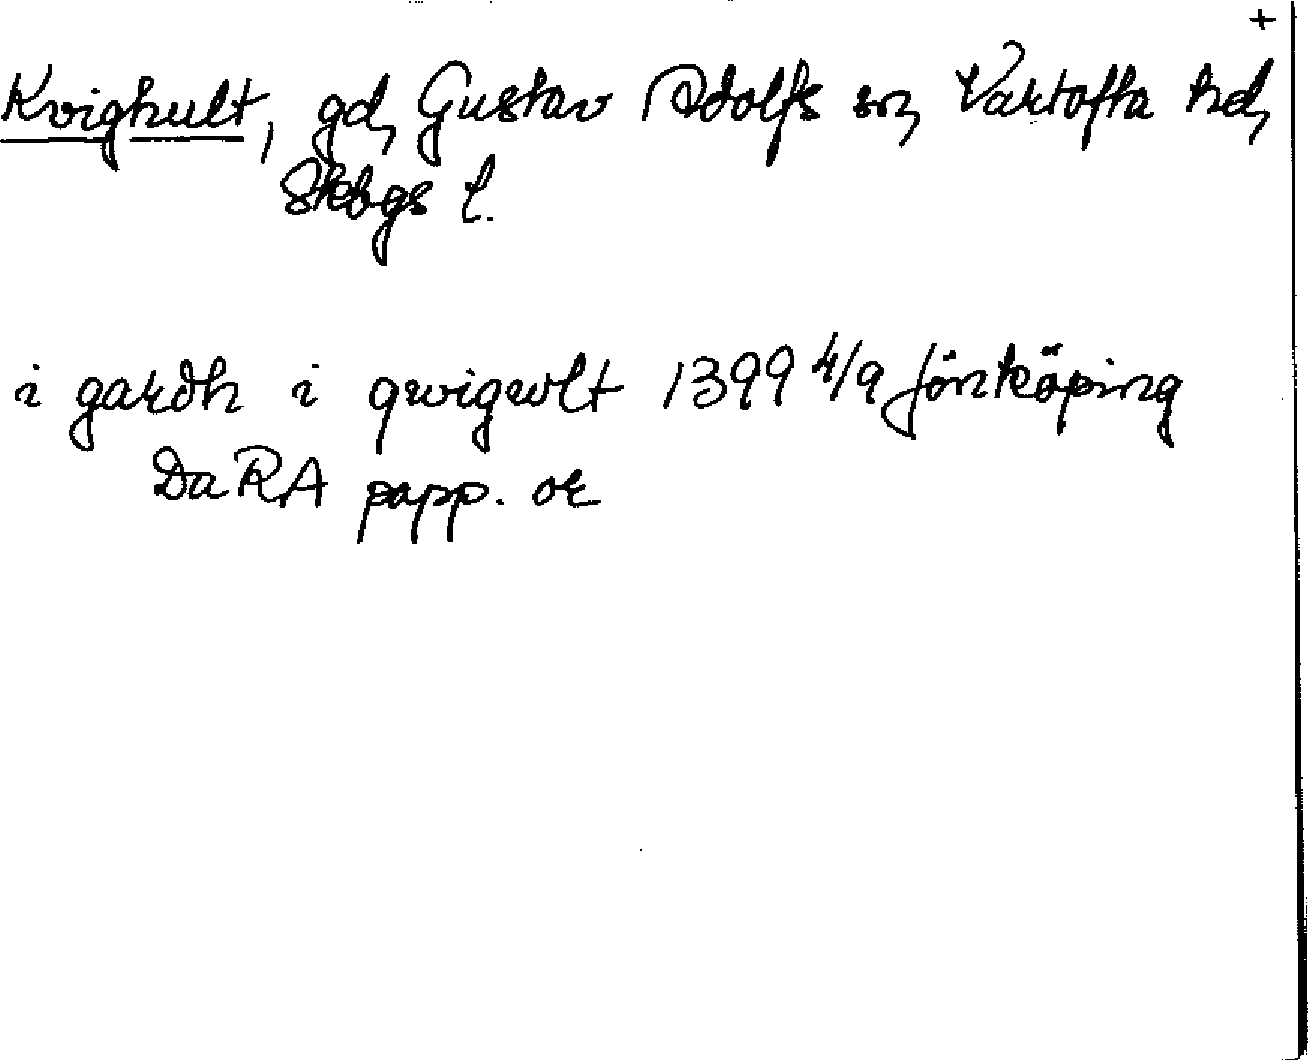 +
Kvighult, gd, Gustav Adolfs sn, Vartofta hd,
Skbgs l.
i gardh i qwigwlt 1399 4/9 Jönköping
DaRA papp. or